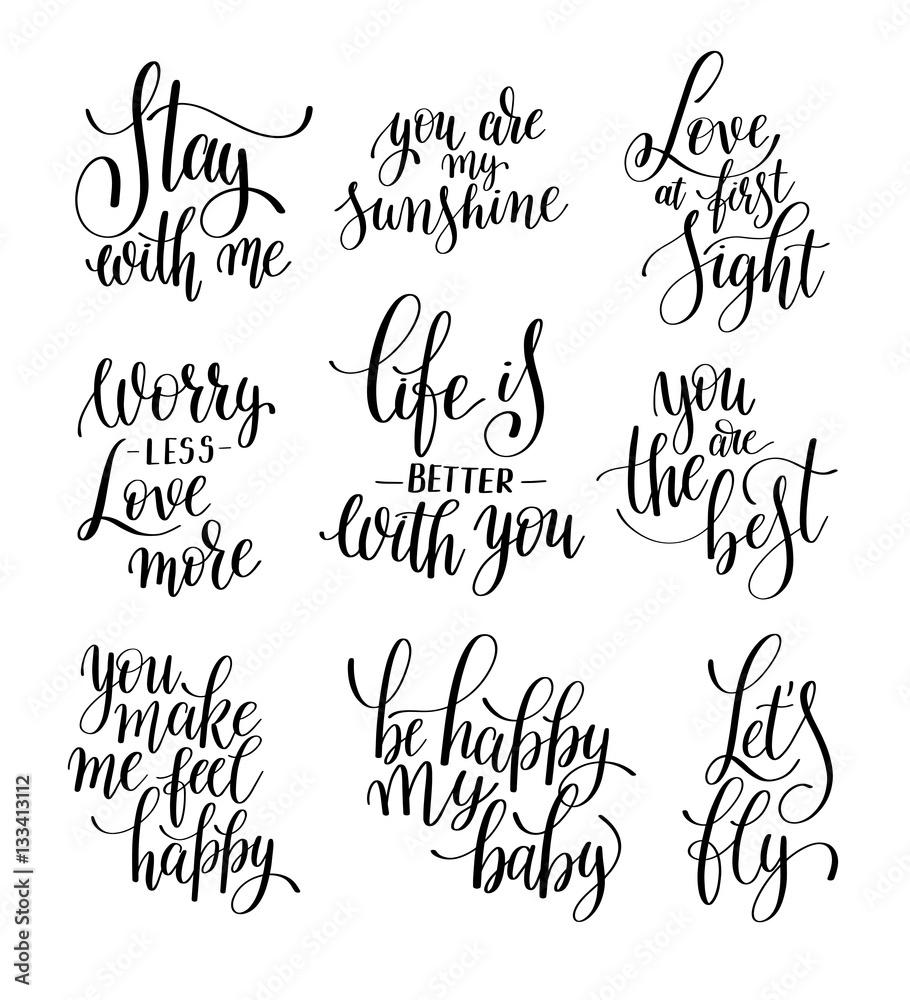 Stay
with me
you are
my
sunshine
Love
at first
Sight
Worry
-LESS-
Love
more
life is
— BETTER —
with you
you
are
the
best
you
make
me feel
happy
be happy
my
baby
Let's
fly
Adobe Stock | #133413112